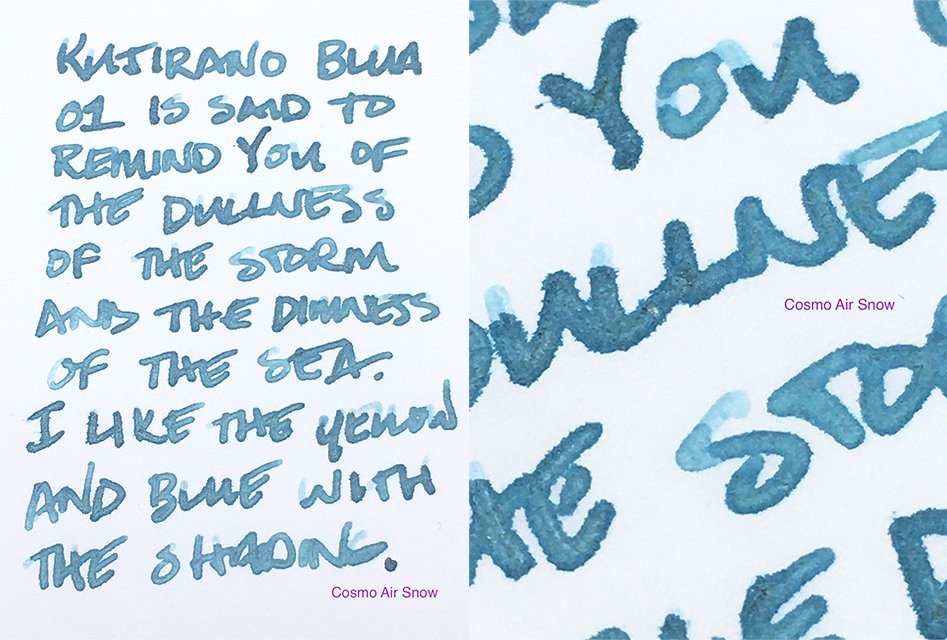 KUJIRANO BLUA
01 IS SAID TO
REMIND YOU OF
THE DULLNESS
OF THE STORM
AND THE DIMNESS
OF THE SEA.
I LIKE THE YELLOW
AND BLUE WITH
THE SHADING.
Cosmo Air Snow
D YOU
ULLNE
Cosmo Air Snow
HE STO